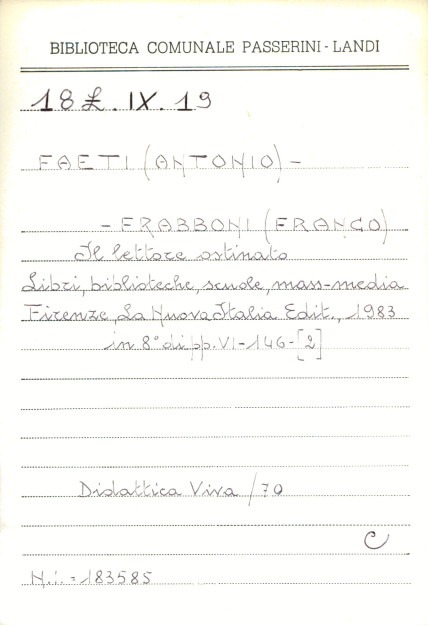 BIBLIOTECA COMUNALE PASSERINI - LANDI
18£. IX. 19
FAETI (ANTONIO) -
- FRABBONI (FRANCO)
Il lettore ostinato
Libri, biblioteche, scuole, mass-media
Firenze, La Nuova Italia Edit., 1983
in 8° di pp. VI-146-[2]
Didattica Viva / 70
C
N.i. = 183585